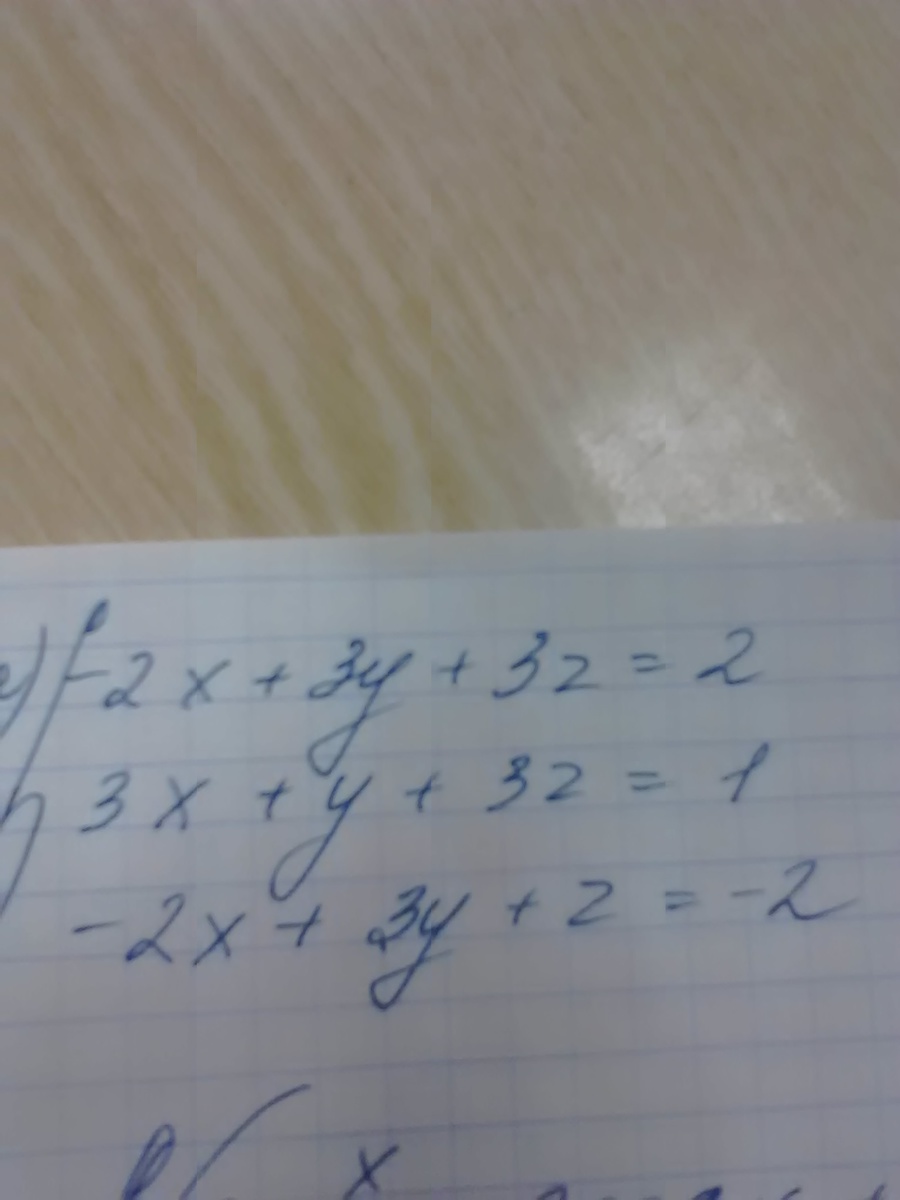 -2x + 3y + 3z = 2
3x + y + 3z = 1
-2x + 3y + z = -2
x